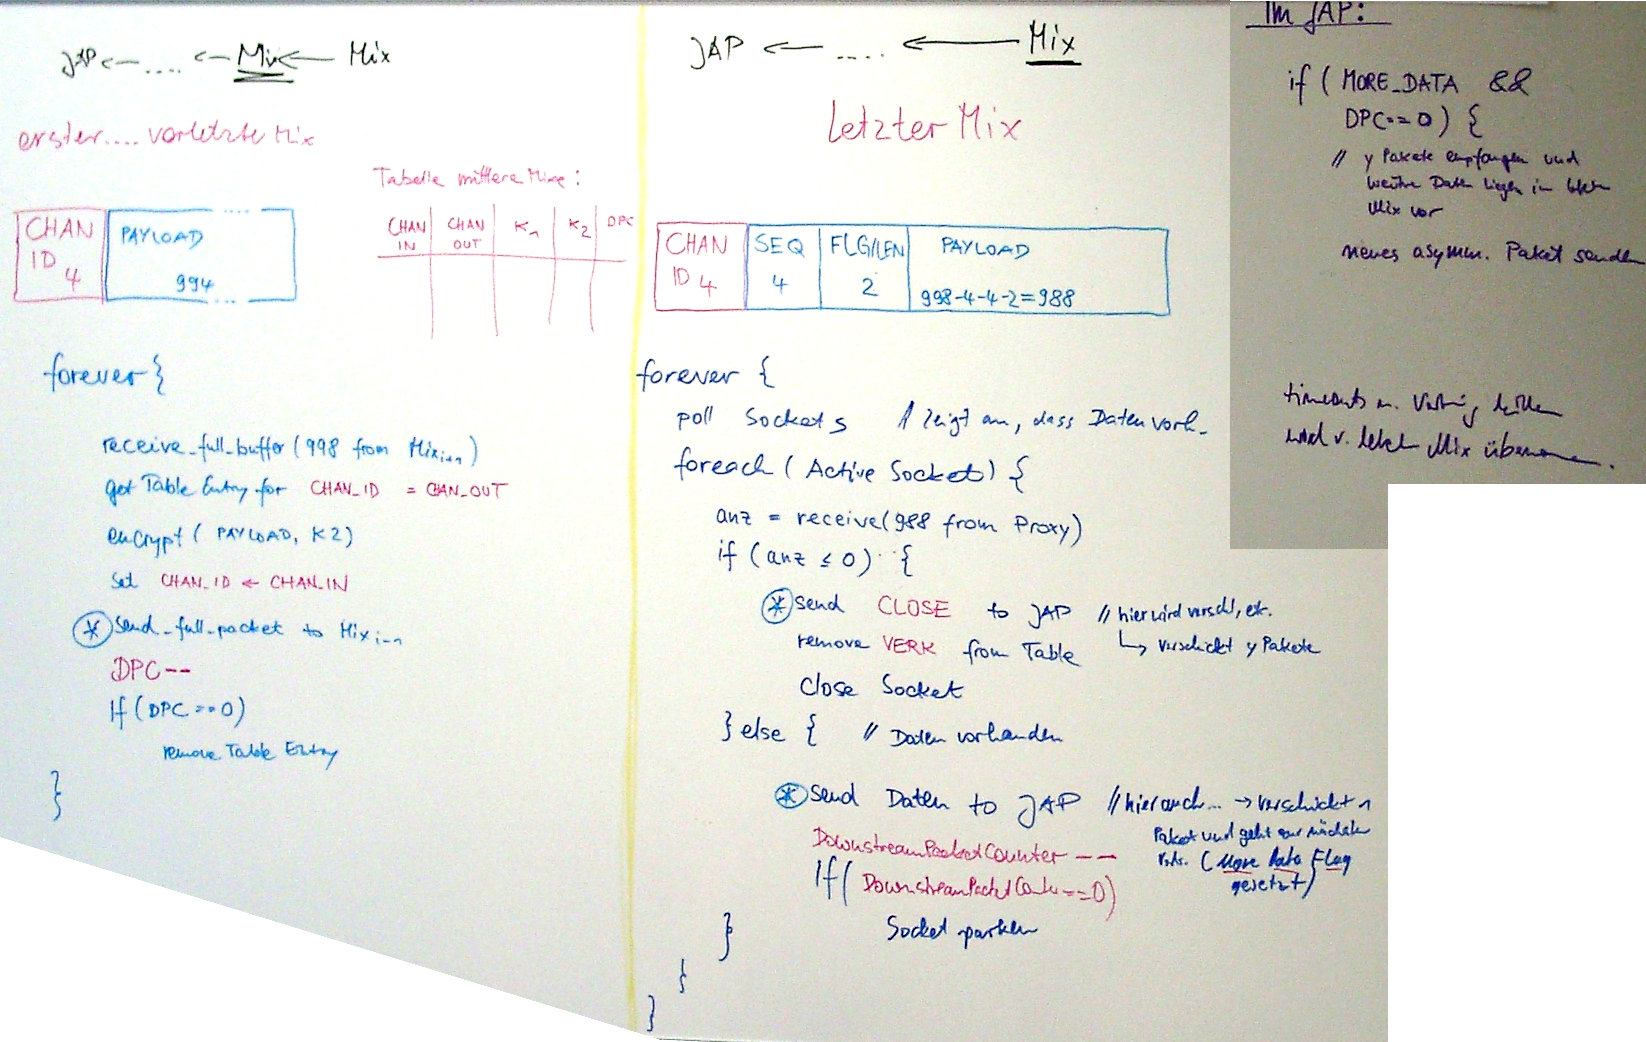 JAP ← .... ← Mix ← Mix
erster.... vorletzte Mix
Tabelle mittlere Mixe:
CHAN IN
CHAN OUT
K1
K2
DPC
CHAN
ID 4
PAYLOAD
994
forever {
receive_full_buffer (998 from Mix i+1)
get Table Entry for CHAN_ID = CHAN_OUT
encrypt ( PAYLOAD, K2)
Set CHAN_ID ← CHAN_IN
* Send_full_packet to Mix i-1
DPC--
If (DPC == 0)
remove Table Entry
}
JAP ← .... ← Mix
Letzter Mix
CHAN
ID 4
SEQ
4
FLG/LEN
2
PAYLOAD
998-4-4-2=988
forever {
poll Sockets // zeigt an, dass Daten vorh.
foreach (Active Socket) {
anz = receive(988 from Proxy)
if (anz ≤ 0) {
* send CLOSE to JAP // hier wird verschl, etc.
remove VERK from Table ↳ verschickt y Pakete
Close Socket
} else { // Daten vorhanden
* Send Daten to JAP // hier auch... → verschickt 1
Paket und geht zur nächsten
(More Data Flag
gesetzt)
DownstreamPacketCounter --
If (DownstreamPacketCounter == 0)
Socket parken
}
}
}
Im JAP:
if ( MORE_DATA &&
DPC == 0) {
// y Pakete empfangen und
weitere Daten liegen im letzten
Mix vor
neues asymm. Paket senden
timeouts
wird v. letzten Mix übernommen.